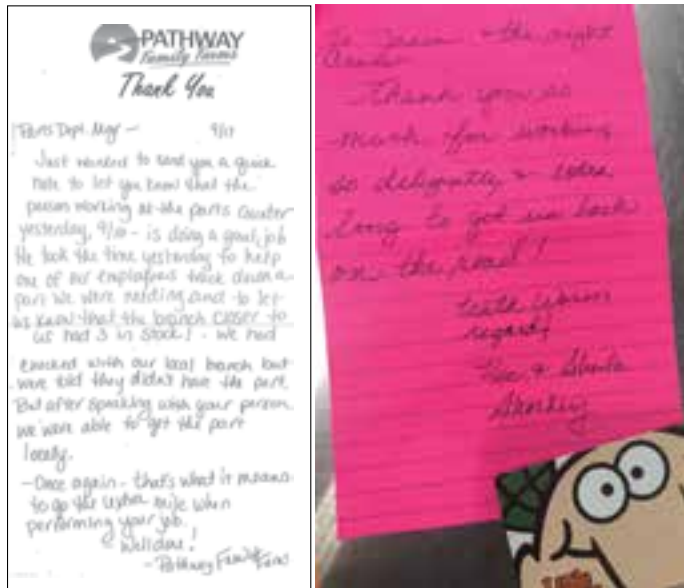 PATHWAY
Family Farms
Thank You
Parts Dept. Mgr – 9/17
Just wanted to send you a quick
note to let you know that the
person working at the parts counter
yesterday, 9/16 – is doing a great job
He took the time yesterday to help
one of our employees track down a
part we were needing and to let
us know that the branch closer to
us had 3 in stock! – We had
checked with our local branch but
were told they didn't have the part.
But after speaking with your person
we were able to get the part
locally.
– Once again – that's what it means
to go the extra mile when
performing your job.
Well done!
– Pathway Family Farms
To & the night
Thank you so
much for working
so diligently & extra
long to get us back
on the road!
with warm
regards
& Sheila